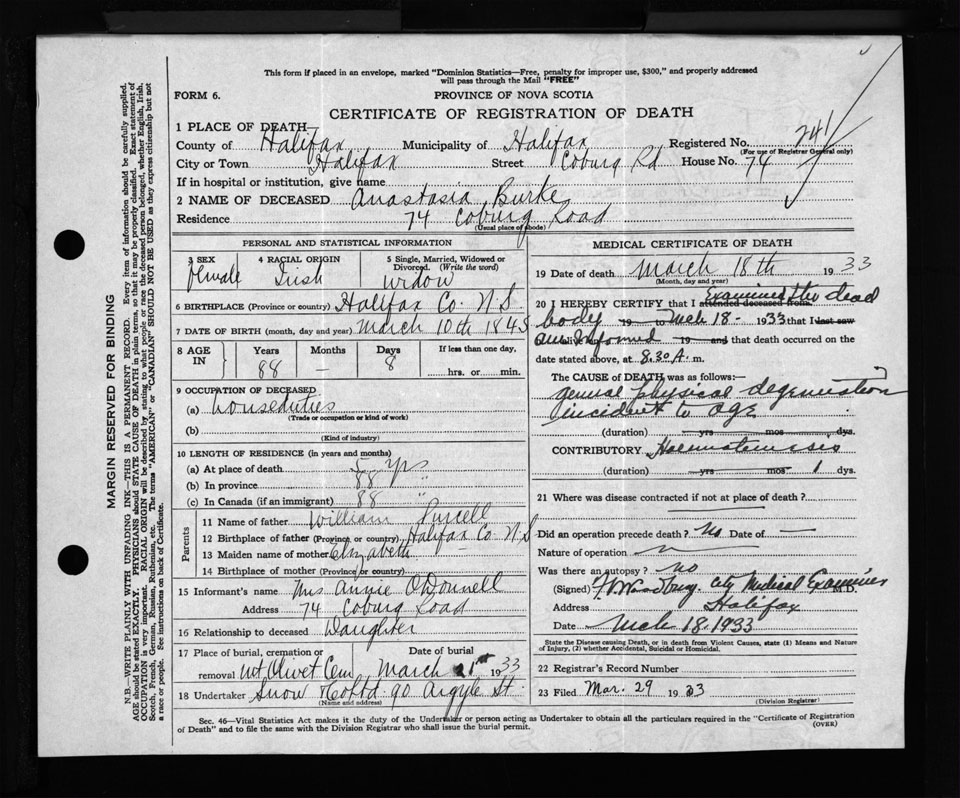 This form if placed in an envelope, marked "Dominion Statistics—Free, penalty for improper use, $300," and properly addressed
will pass through the Mail "FREE"
FORM 6. PROVINCE OF NOVA SCOTIA
CERTIFICATE OF REGISTRATION OF DEATH
1 PLACE OF DEATH—
County of Halifax Municipality of Halifax Registered No. 241
(For use of Registrar General only)
City or Town Halifax Street Coburg Rd House No. 74
If in hospital or institution, give name
2 NAME OF DECEASED Anastasia Burke
Residence 74 Coburg Road
(Usual place of abode)
PERSONAL AND STATISTICAL INFORMATION
3 SEX 4 RACIAL ORIGIN 5 Single, Married, Widowed or
Divorced. (Write the word)
Female Irish Widow
6 BIRTHPLACE (Province or country) Halifax Co N.S.
7 DATE OF BIRTH (month, day and year) March 10th 1845
8 AGE IN Years Months Days If less than one day,
88 — 8 hrs. or min.
9 OCCUPATION OF DECEASED
(a) houseduties
(Trade or occupation or kind of work)
(b)
(Kind of industry)
10 LENGTH OF RESIDENCE (in years and months)
(a) At place of death yrs
(b) In province 88 "
(c) In Canada (if an immigrant) 88 "
Parents
11 Name of father William Purcell
12 Birthplace of father (Province or country) Halifax Co N.S
13 Maiden name of mother Elizabeth —
14 Birthplace of mother (Province or country)
15 Informant's name Mrs Annie O'Donnell
Address 74 Coburg Road
16 Relationship to deceased Daughter
17 Place of burial, cremation or Date of burial
removal Mt Olivet Cem March 21st 1933
18 Undertaker Snow & Co Ltd. 90 Argyle St.
(Name and address)
MEDICAL CERTIFICATE OF DEATH
19 Date of death March 18th 1933
(Month, day and year)
20 I HEREBY CERTIFY that I attended deceased from Examined the dead
body 19 to Mch 18 - 1933 that I last saw
am Informed 19 and that death occurred on the
date stated above, at 8.30 A. m.
The CAUSE of DEATH was as follows:—
general physical degeneration
incident to age
(duration) yrs mos dys.
CONTRIBUTORY Haematemesis
(duration) yrs mos 1 dys.
21 Where was disease contracted if not at place of death?
Did an operation precede death? No Date of —
Nature of operation
Was there an autopsy? no
(Signed) Woodbury. City Medical Examiner M.D.
Address Halifax
Date Mch 18. 1933
State the Disease causing Death, or in death from Violent Causes, state (1) Means and Nature
of Injury, (2) whether Accidental, Suicidal or Homicidal.
22 Registrar's Record Number
23 Filed Mar. 29 1933
(Division Registrar)
Sec. 46—Vital Statistics Act makes it the duty of the Undertaker or person acting as Undertaker to obtain all the particulars required in the "Certificate of Registration
of Death" and to file the same with the Division Registrar who shall issue the burial permit. (OVER)
MARGIN RESERVED FOR BINDING
N.B.—WRITE PLAINLY WITH UNFADING INK—THIS IS A PERMANENT RECORD. Every item of information should be carefully supplied.
AGE should be stated EXACTLY. PHYSICIANS should STATE CAUSE OF DEATH in plain terms, so that it may be properly classified. Exact statement of
OCCUPATION is very important. RACIAL ORIGIN will be described by stating to what people or race the deceased person belonged, whether English, Irish,
Scotch, French, German, Russian, Ruthenian, etc. The terms "AMERICAN" or "CANADIAN" SHOULD NOT BE USED as they express citizenship but not
a race or people. See instructions on back of Certificate.